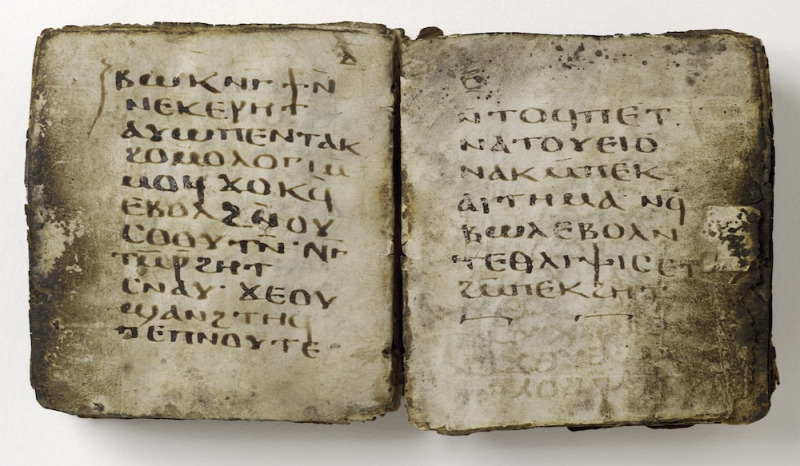 ⲃⲱⲕ ⲛⲅ̄ ϯ ⲛ̄
ⲛⲉⲕⲉⲣⲏⲧ
ⲁⲩⲱ ⲡⲉⲛⲧⲁⲕ
ϩⲟⲙⲟⲗⲟⲅⲓ ⲙ̄
ⲙⲟϥ ϫⲟⲕϥ̄
ⲉⲃⲟⲗ ϩⲛ̄ ⲟⲩ
ⲥⲟⲟⲩⲧⲛ̄· ⲛⲅ̄
ⲧⲙⲣϩⲏⲧ
ⲥⲛⲁⲩ· ϫⲉ ⲟⲩ
ϣⲁⲛϩⲧⲏϥ
ⲡⲉ ⲡⲛⲟⲩⲧⲉ
ⲛⲧⲟϥ ⲡⲉⲧ
ⲛⲁⲧⲟⲩⲉⲓⲟ
ⲛⲁⲕ ⲙ̄ⲡⲉⲕ
ⲁⲓⲧⲏⲙⲁ· ⲛϥ̄
ⲃⲱⲗ ⲉⲃⲟⲗ ⲛ
ⲧⲉⲑⲗⲓⲯⲓⲥ ⲉⲧ
ϩⲙ ⲡⲉⲕϩⲏⲧ